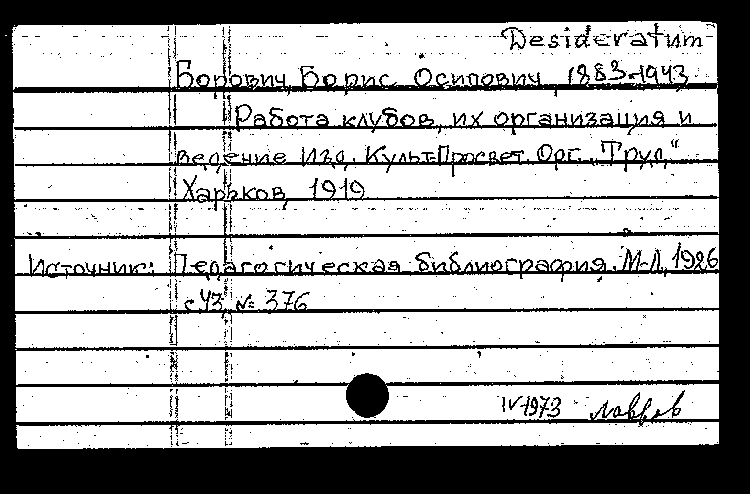 Desideratum
Борович, Борис Осипович, 1883-1943
Работа клубов, их организация и
ведение Изд. Культ-Просвет. Орг. „Труд“
Харьков, 1919
Источник: Педагогическая библиография. М-Л, 1926
с 43, № 376
IV-1973 Лавров